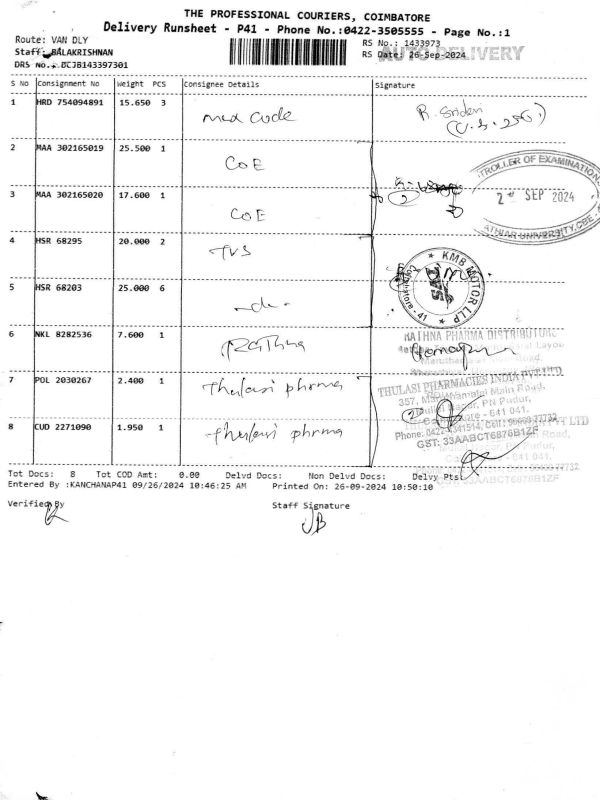 THE PROFESSIONAL COURIERS, COIMBATORE
Delivery Runsheet - P41 - Phone No.:0422-3505555 - Page No.:1
Route: VAN DLY
RS No.: 1433973
AUTO DELIVERY
Staff: BALAKRISHNAN
RS Date: 26-Sep-2024
DRS No.: DCJB143397301
S No Consignment No Weight PCS Consignee Details Signature
1 HRD 754094891 15.650 3 Med Code
2 MAA 302165019 25.500 1 COE
3 MAA 302165020 17.600 1 COE
4 HSR 68295 20.000 2 TVS
5 HSR 68203 25.000 6 -do-
6 NKL 8282536 7.600 1 Rathna
7 POL 2030267 2.400 1 Thulasi phrma
8 CUD 2271090 1.950 1 Thulasi phrma
SEP 2024
KMB MOTOR LLP
RATHNA PHARMA DISTRIBUTORS
THULASI PHARMACIES INDIA PVT LTD
Main Road,
PN Pudur,
- 641 041.
GST: 33AABCT6876B1ZF
Tot Docs: 8 Tot COD Amt: 0.00 Delvd Docs: Non Delvd Docs: Delvy Pts:
Entered By :KANCHANAP41 09/26/2024 10:46:25 AM Printed On: 26-09-2024 10:50:10
Verified By
Staff Signature